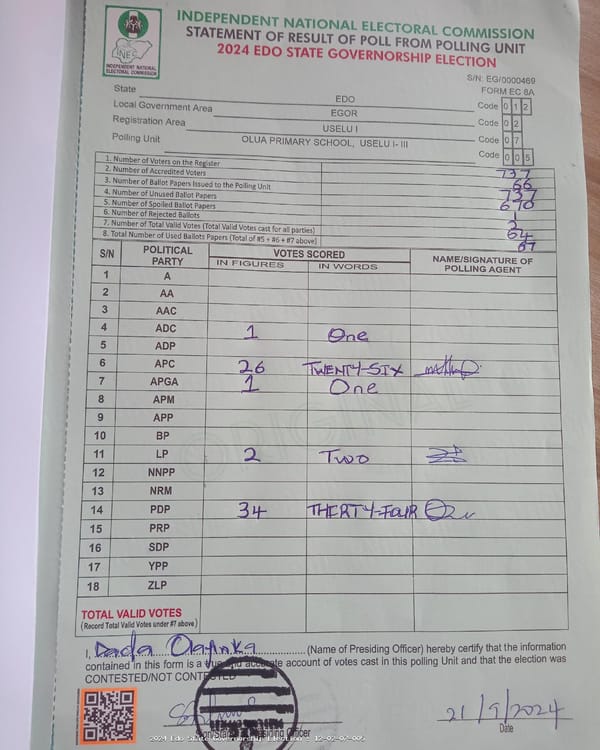 INDEPENDENT NATIONAL ELECTORAL COMMISSION
STATEMENT OF RESULT OF POLL FROM POLLING UNIT
2024 EDO STATE GOVERNORSHIP ELECTION
INEC
INDEPENDENT NATIONAL
ELECTORAL COMMISSION
S/N: EG/0000469
FORM EC 8A
State EDO Code 0 1 2
Local Government Area EGOR Code 0 2
Registration Area USELU I Code 0 7
Polling Unit OLUA PRIMARY SCHOOL, USELU I- III Code 0 0 5
1. Number of Voters on the Register 737
2. Number of Accredited Voters 66
3. Number of Ballot Papers Issued to the Polling Unit 737
4. Number of Unused Ballot Papers 670
5. Number of Spoiled Ballot Papers 1
6. Number of Rejected Ballots 2
7. Number of Total Valid Votes (Total Valid Votes cast for all parties) 64
8. Total Number of Used Ballots Papers (Total of #5 + #6 + #7 above) 67
S/N POLITICAL PARTY VOTES SCORED NAME/SIGNATURE OF POLLING AGENT
IN FIGURES IN WORDS
1 A
2 AA
3 AAC
4 ADC 1 One
5 ADP
6 APC 26 TWENTY-SIX
7 APGA 1 One
8 APM
9 APP
10 BP
11 LP 2 Two
12 NNPP
13 NRM
14 PDP 34 THERTY-FOUR
15 PRP
16 SDP
17 YPP
18 ZLP
TOTAL VALID VOTES
(Record Total Valid Votes under #7 above)
I, Dada (Name of Presiding Officer) hereby certify that the information
contained in this form is a true and accurate account of votes cast in this polling Unit and that the election was
CONTESTED/NOT CONTESTED
Officer
21/9/2024
Date
2024 Edo State Governorship Election - 12-02-07-005
ORIGINAL